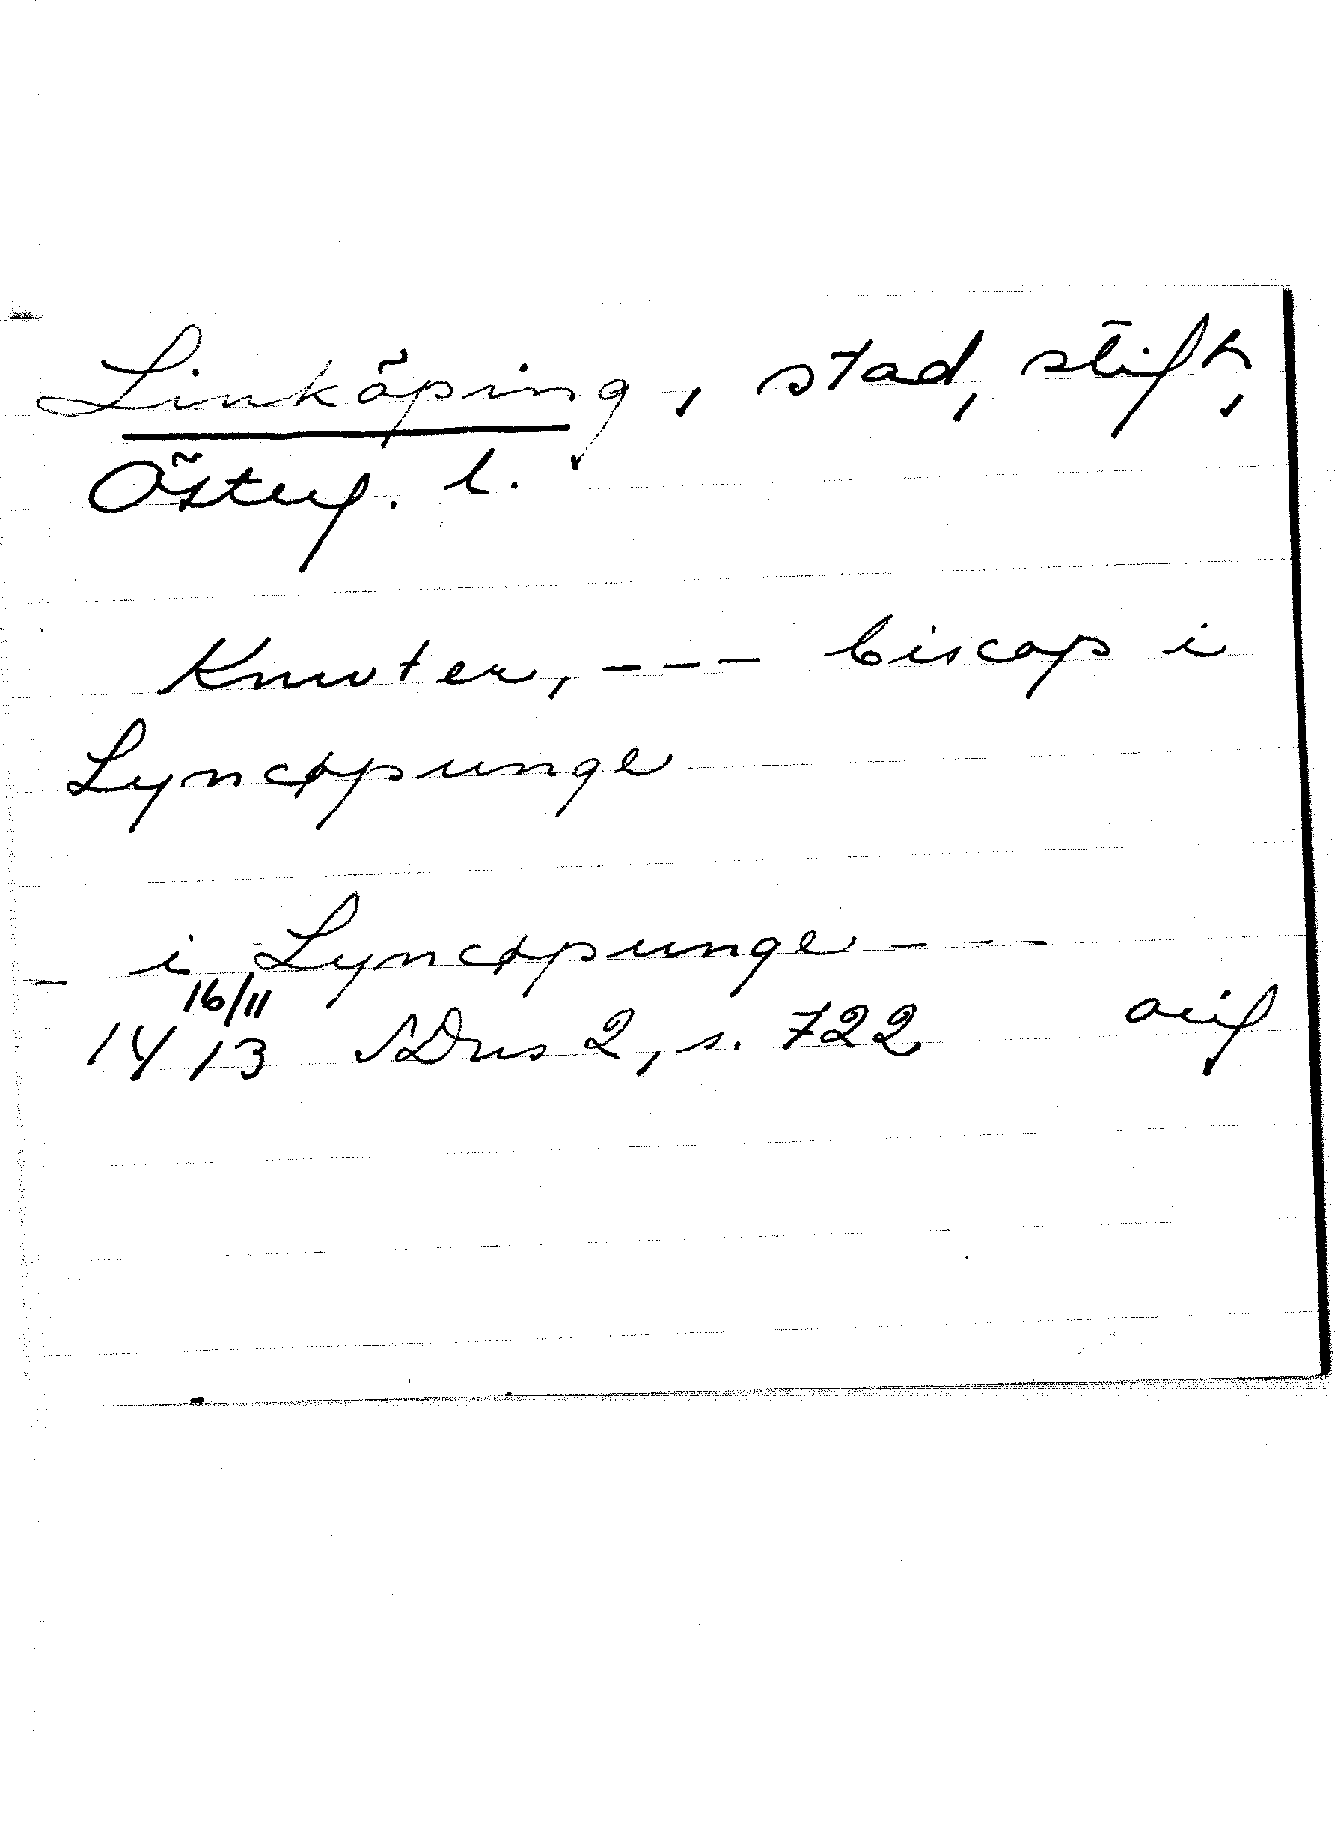 Linköping, stad, stift,
Österg. l.
Knwter, --- biscop i
Lyncøpunge
- i Lyncøpunge ---
16/11
1413 SDns 2, s. 722 orig